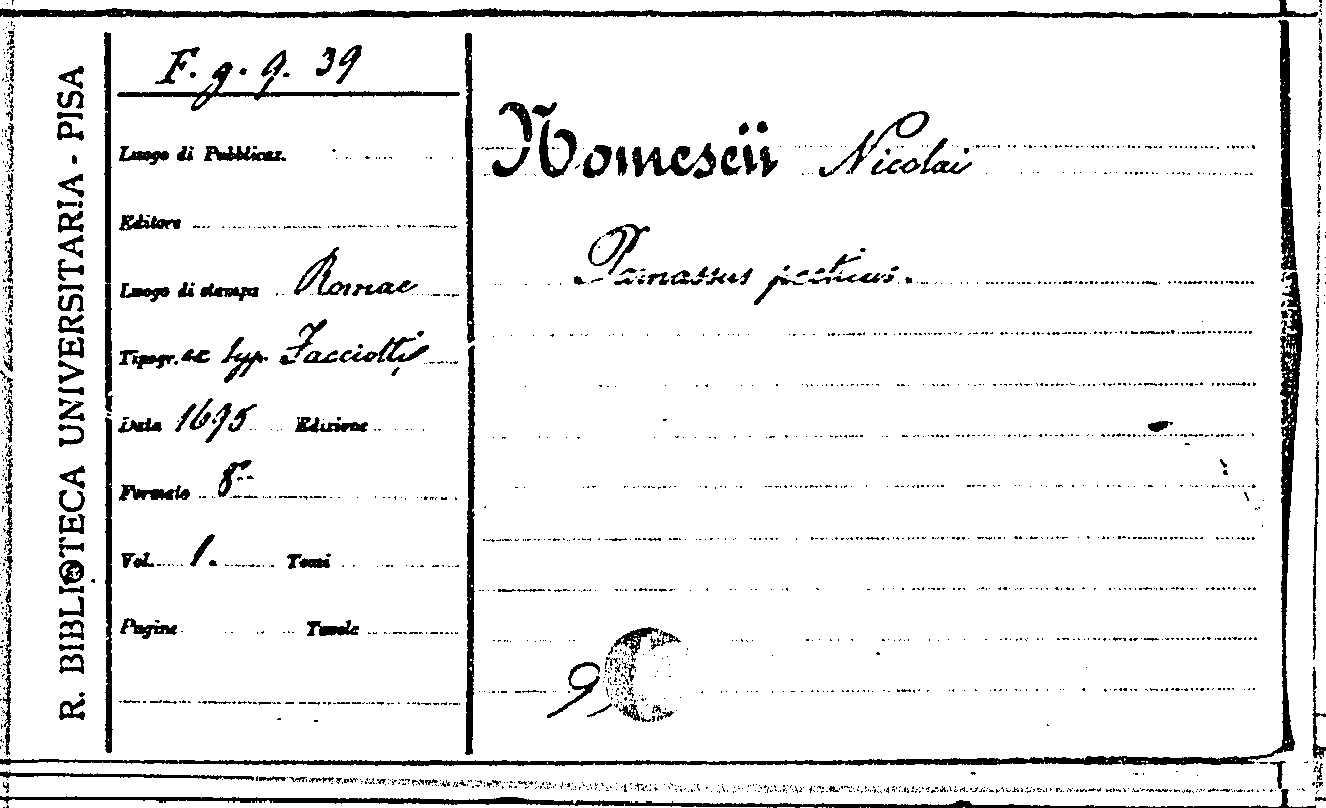 R. BIBLIOTECA UNIVERSITARIA - PISA
F. g. 9. 39
Luogo di Pubblicaz.
Editore
Luogo di stampa Romae
Tipogr. ex typ. Facciotti
Data 1695 Edizione
Formato 8°
Vol. 1. Tomi
Pagine Tavole
Nomeseii Nicolai
Parnassus poeticus.